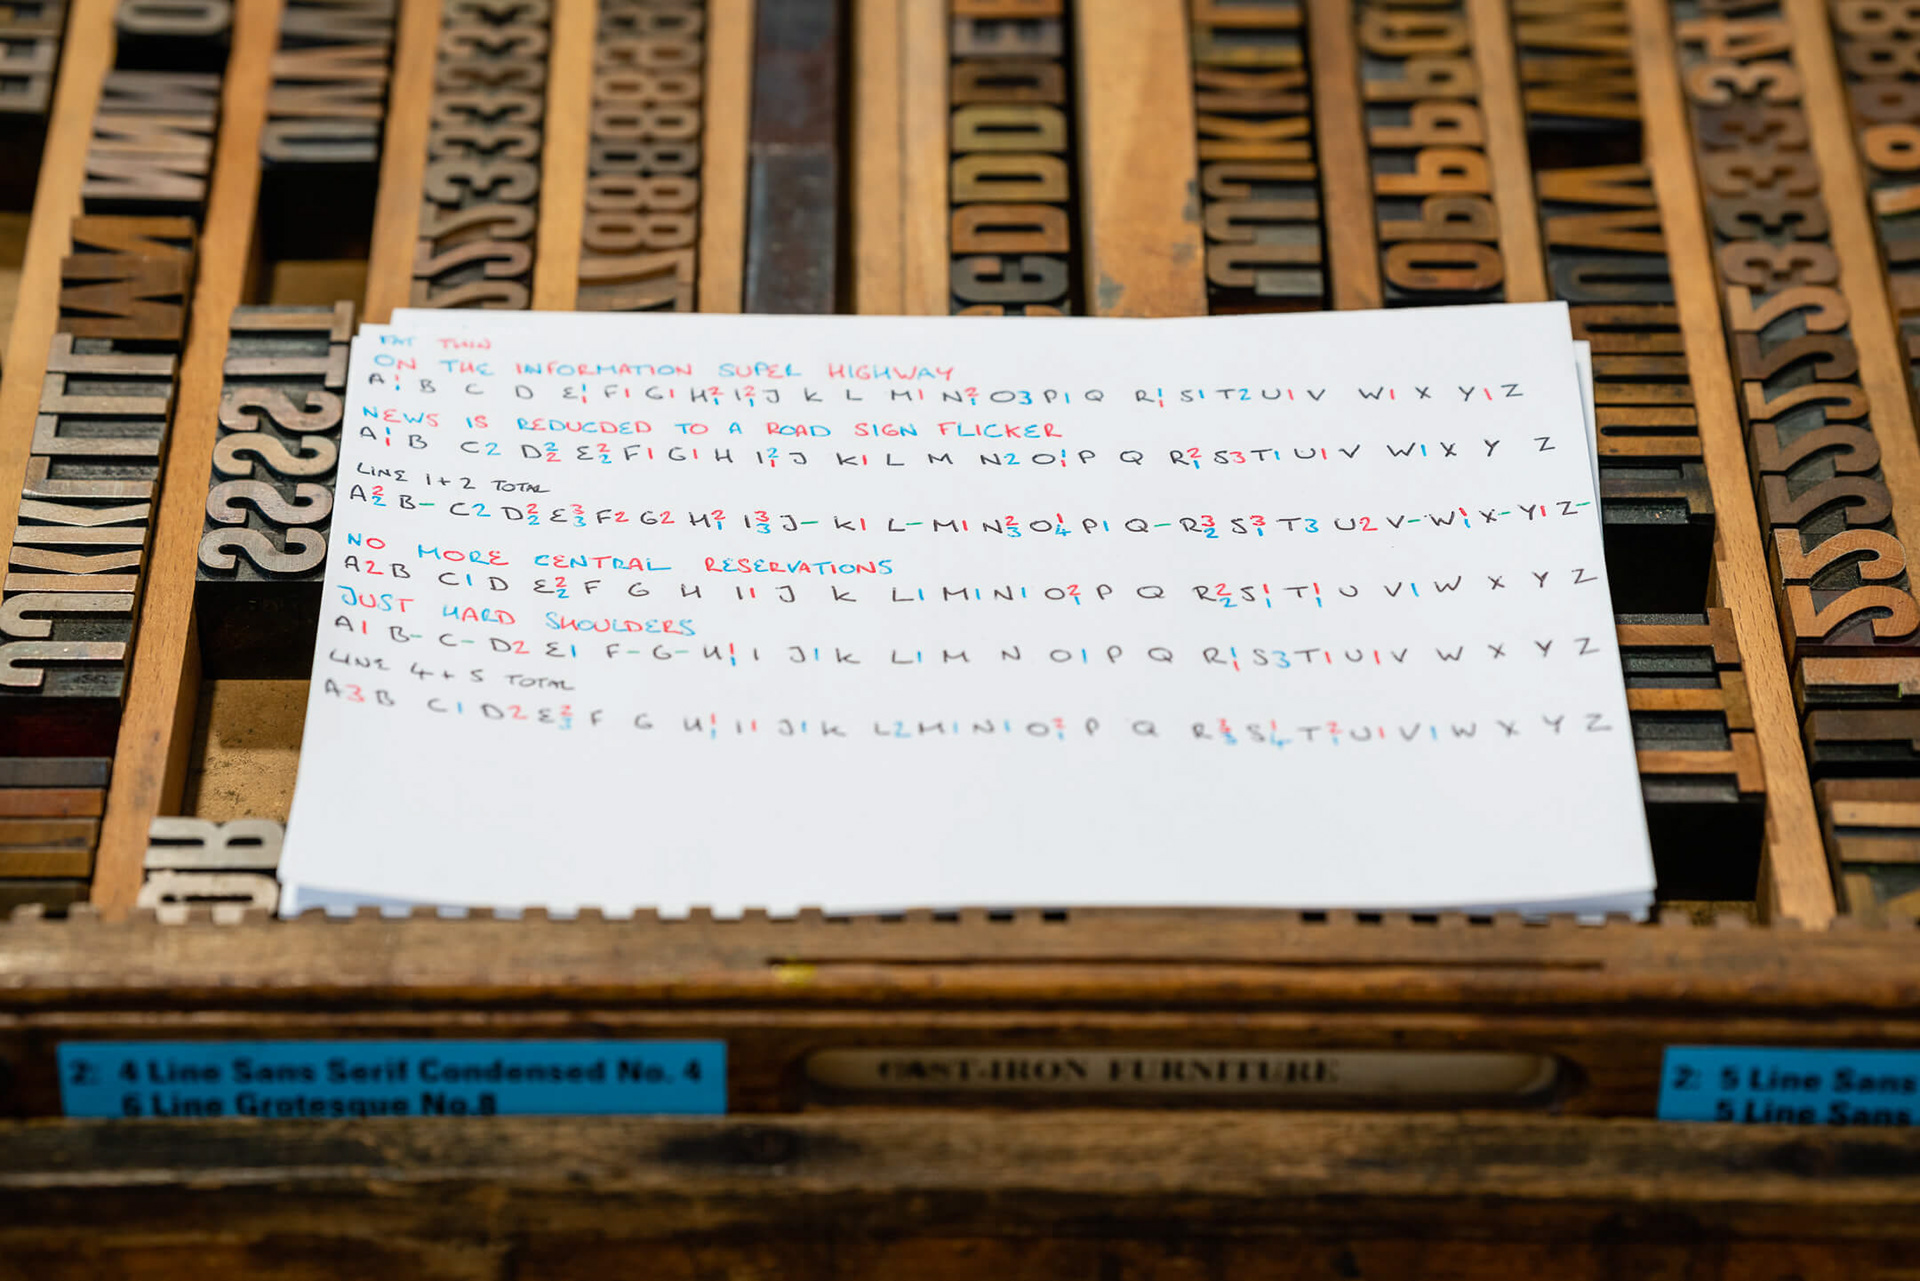 FAT THIN
ON THE INFORMATION SUPER HIGHWAY
A 1 1 B C D E 1 1 F1 G1 H 2 1 I 2 1 J K L M1 N 2 2 O3 P1 Q R 1 1 S1 T2 U1 V W1 X Y1 Z
NEWS IS REDUCDED TO A ROAD SIGN FLICKER
A 1 1 B C2 D 2 2 E 2 2 F1 G1 H I 2 1 J K1 L M N2 O 1 1 P Q R 2 1 S3 T1 U1 V W1 X Y Z
LINE 1+2 TOTAL
A 2 2 B- C2 D 2 2 E 3 3 F2 G2 H 2 1 I 3 3 J- K1 L- M1 N 2 3 O 1 4 P1 Q- R 3 2 S 3 1 T3 U2 V- W 1 1 X- Y1 Z-
NO MORE CENTRAL RESERVATIONS
A2 B C1 D E 2 2 F G H I1 J K L1 M1 N1 O 2 1 P Q R 2 2 S 1 1 T 1 1 U V1 W X Y Z
JUST HARD SHOULDERS
A1 B- C- D2 E1 F- G- H 1 1 I J1 K L1 M N O1 P Q R 1 1 S3 T1 U1 V W X Y Z
LINE 4+5 TOTAL
A3 B C1 D2 E 2 3 F G H 1 1 I1 J1 K L2 M1 N1 O 2 2 P Q R 3 3 S 1 4 T 2 1 U1 V1 W X Y Z
2: 4 Line Sans Serif Condensed No. 4
6 Line Grotesque No.8
CAST-IRON FURNITURE
2: 5 Line Sans
5 Line Sans